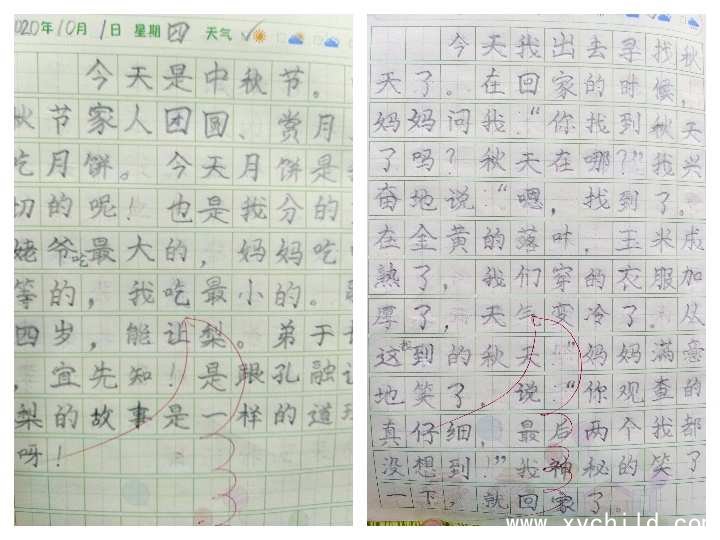 2020年10月1日 星期四 天气
今天是中秋节。
秋节家人团圆、赏月
吃月饼。今天月饼是
切的呢！也是我分的
姥爷吃最大的，妈妈吃
等的，我吃最小的。
四岁，能让梨。弟于
，宜先知！是跟孔融让
梨的故事是一样的道理
呀！
今天我出去寻找秋
天了。在回家的时候，
妈妈问我：“你找到秋天
了吗？秋天在哪？”我兴
奋地说：“嗯，找到了。
在金黄的落叶，玉米成
熟了，我们穿的衣服加
厚了，天气变冷了。从
这找到的秋天！”妈妈满意
地笑了，说：“你观查的
真仔细，最后两个我都
没想到！”我神秘的笑了
一下，就回家了。
www.xychild.com